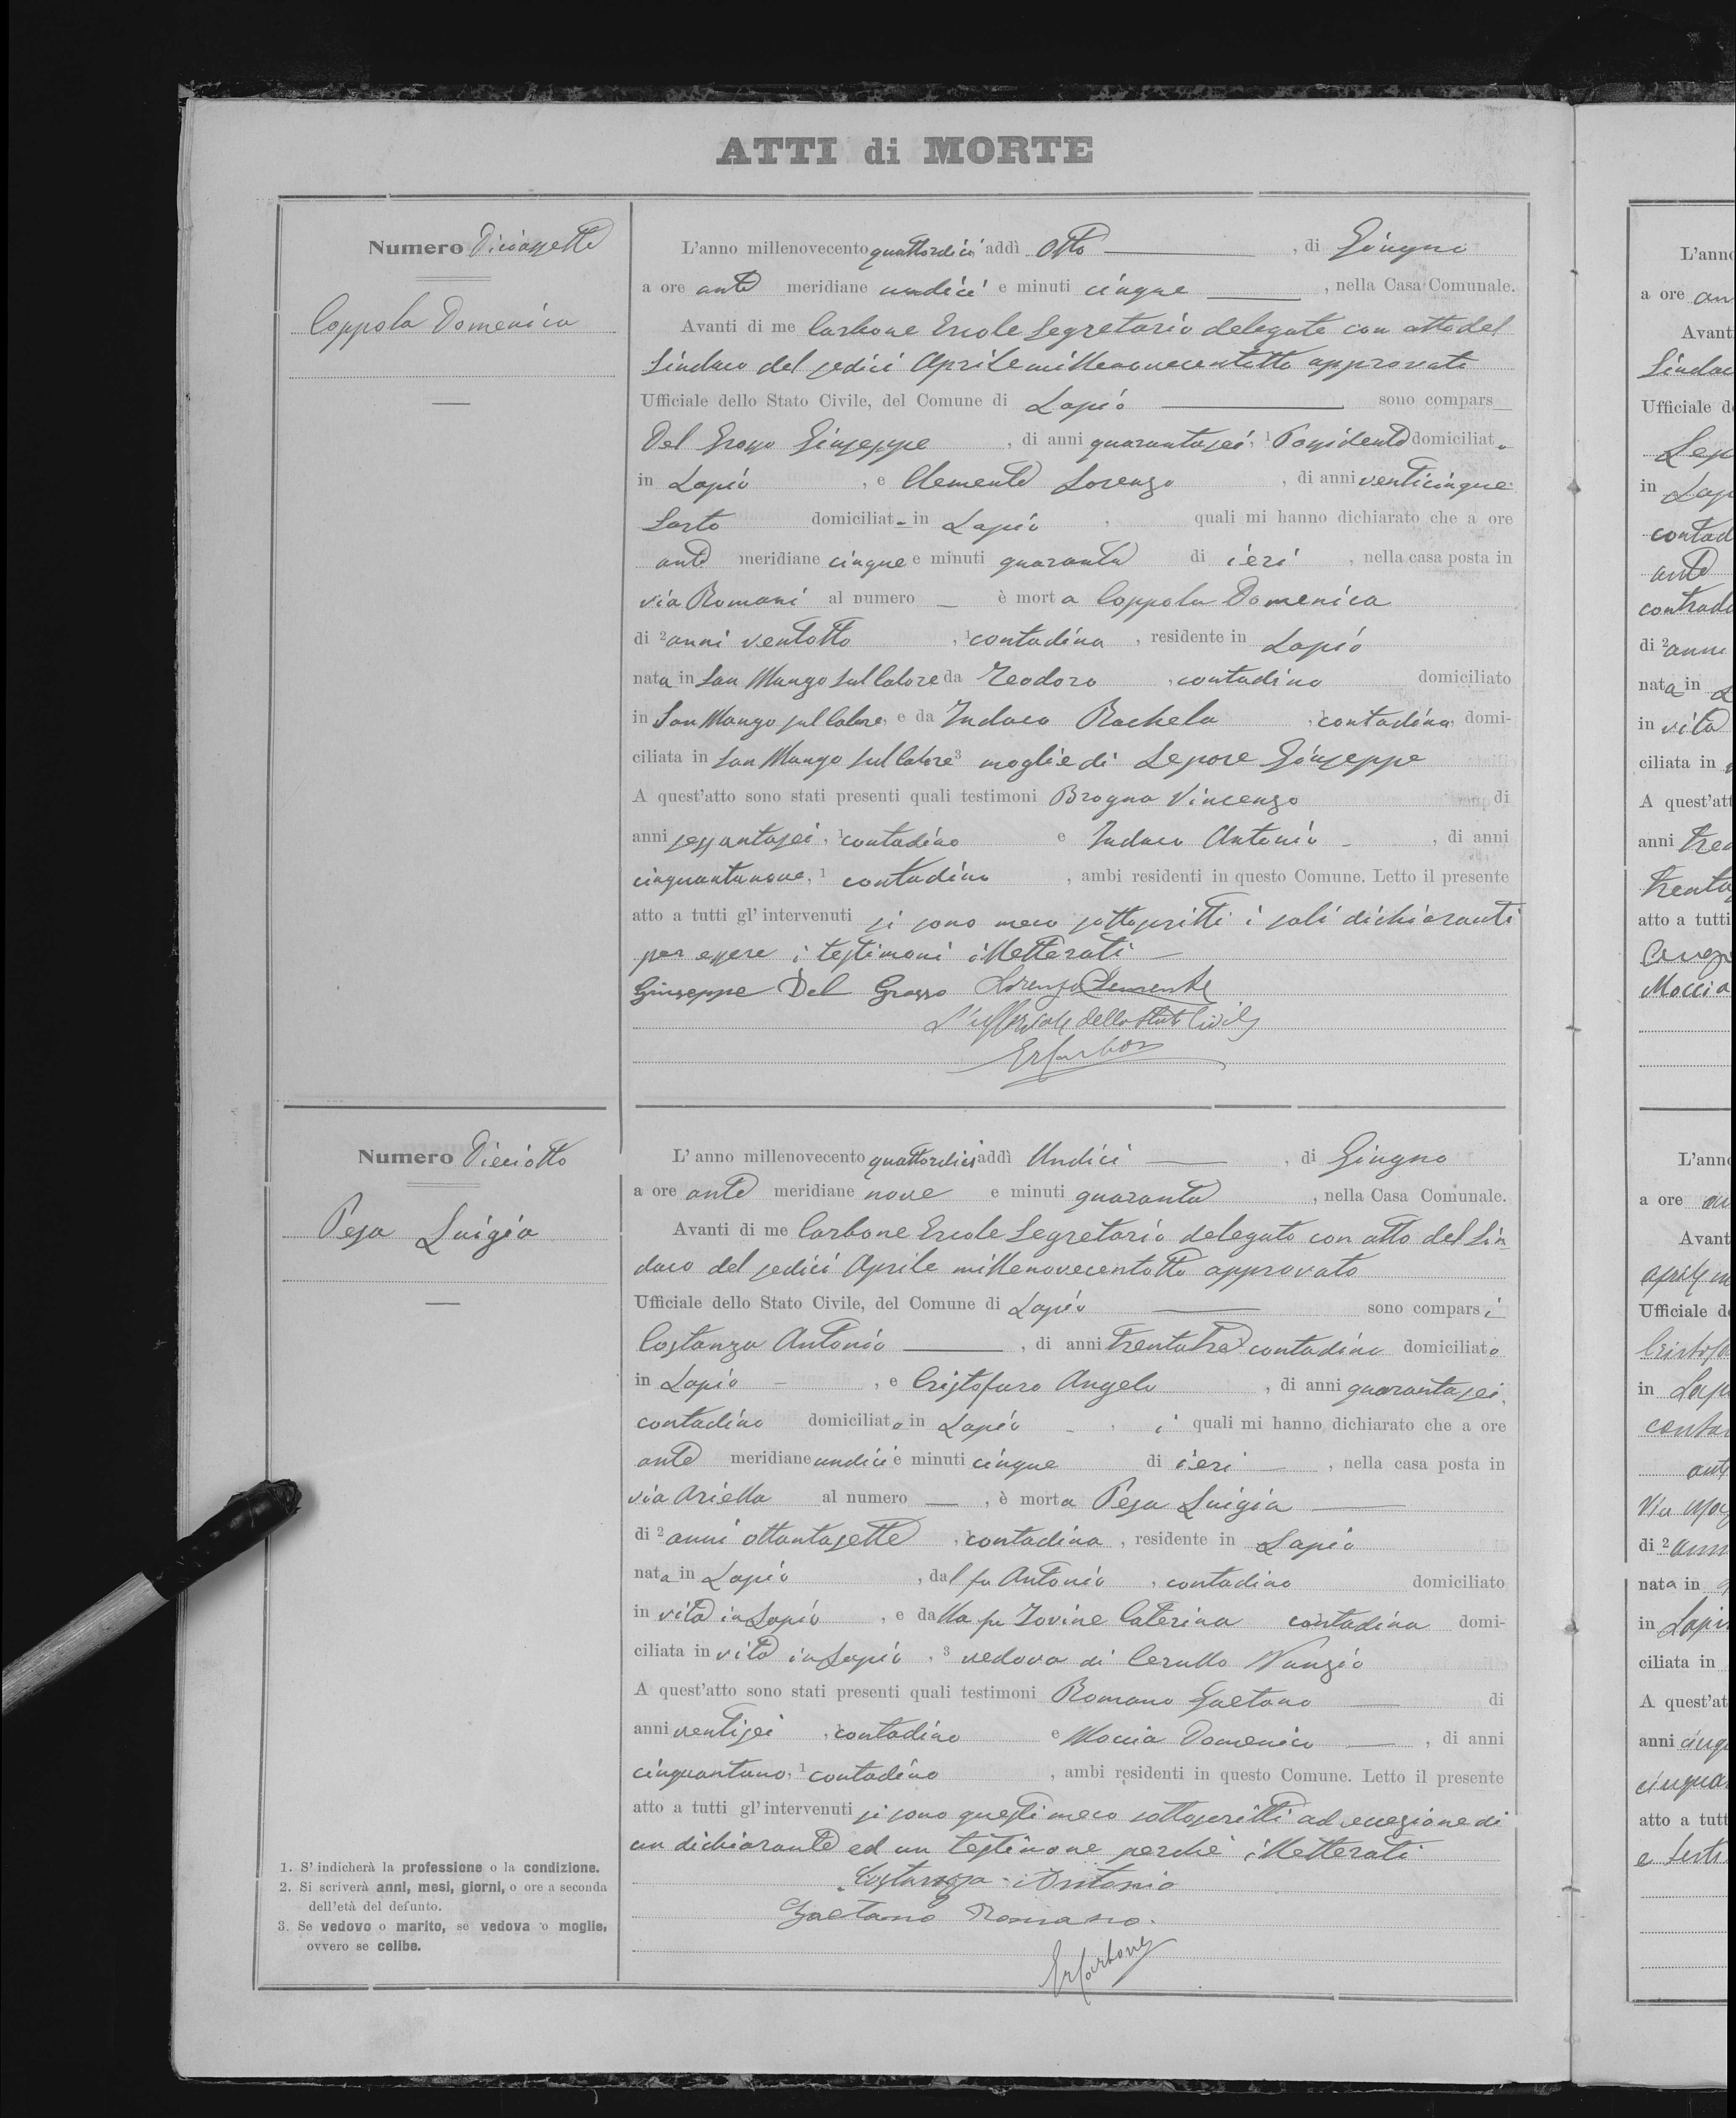 ATTI di MORTE
Numero Diciassette
Coppola Domenica
L'anno millenovecento quattordici addì Otto , di Giugno
a ore ante meridiane undici e minuti cinque , nella Casa Comunale.
Avanti di me Carbone Ercole Segretario delegato con atto del
Sindaco del sedici Aprile millenovecentotto approvato
Ufficiale dello Stato Civile, del Comune di Lapio sono compars
Del Grosso Giuseppe , di anni quarantasei, 1 Possidente domiciliato
in Lapio , e Clemente Lorenzo , di anni venticinque
Sarto domiciliat in Lapio , quali mi hanno dichiarato che a ore
ante meridiane cinque e minuti quaranta di ieri , nella casa posta in
via Romani al numero è morta Coppola Domenica
di 2 anni ventotto , 1 contadina , residente in Lapio
nata in San Mango sul Calore da Teodoro , contadino domiciliato
in San Mango sul Calore, e da Indaco Rachela , 1 contadina domi-
ciliata in San Mango sul Calore 3 moglie di Lepore Giuseppe
A quest'atto sono stati presenti quali testimoni Brogna Vincenzo di
anni sessantasei, 1 contadino e Indaco Antonio , di anni
cinquantanove, 1 contadino , ambi residenti in questo Comune. Letto il presente
atto a tutti gl'intervenuti si sono meco sottoscritti i soli dichiaranti
per essere i testimoni illetterati
Giuseppe Del Grosso Lorenzo Clemente
L'ufficiale dello Stato Civile
ErCarbone
Numero Dieciotto
Pesa Luigia
L'anno millenovecento quattordici addì Undici , di Giugno
a ore ante meridiane nove e minuti quaranta , nella Casa Comunale.
Avanti di me Carbone Ercole Segretario delegato con atto del Sin
daco del sedici Aprile millenovecentotto approvato
Ufficiale dello Stato Civile, del Comune di Lapio sono comparsi
Costanza Antonio , di anni trentatre 1 contadino domiciliato
in Lapio , e Cristofaro Angelo , di anni quarantasei,
contadino domiciliato in Lapio , i quali mi hanno dichiarato che a ore
ante meridiane undici e minuti cinque di ieri , nella casa posta in
via Ariella al numero , è morta Pesa Luigia
di 2 anni ottantasette , contadina , residente in Lapio
nata in Lapio , dal fu Antonio , contadino domiciliato
in vita in Lapio , e dalla fu Iovine Caterina contadina domi-
ciliata in vita in Lapio , 3 vedova di Cerullo Nunzio
A quest'atto sono stati presenti quali testimoni Romano Gaetano di
anni ventisei , contadino e Moccia Domenico , di anni
cinquantuno, 1 contadino , ambi residenti in questo Comune. Letto il presente
atto a tutti gl'intervenuti si sono questi meco sottoscritti ad eccezione di
un dichiarante ed un testimone perchè illetterati
Costanza Antonio
Gaetano Romano.
ErCarbone
1. S'indicherà la professione o la condizione.
2. Si scriverà anni, mesi, giorni, o ore a seconda
dell'età del defunto.
3. Se vedovo o marito, se vedova o moglie,
ovvero se celibe.
L'anno
a ore
Avant
Sindac
Ufficiale d
in Lap
contad
ante
contrad
di 2 anni
nata in
in vita
ciliata in
A quest'att
anni tre
trenta
atto a tutti
Moccia
L'anno
a ore
Avant
Ufficiale d
Cristofa
in Lap
contad
Via
di 2 anni
nata in
in Lapi
ciliata in
A quest'at
anni cinq
cinqua
atto a tutt
e testi